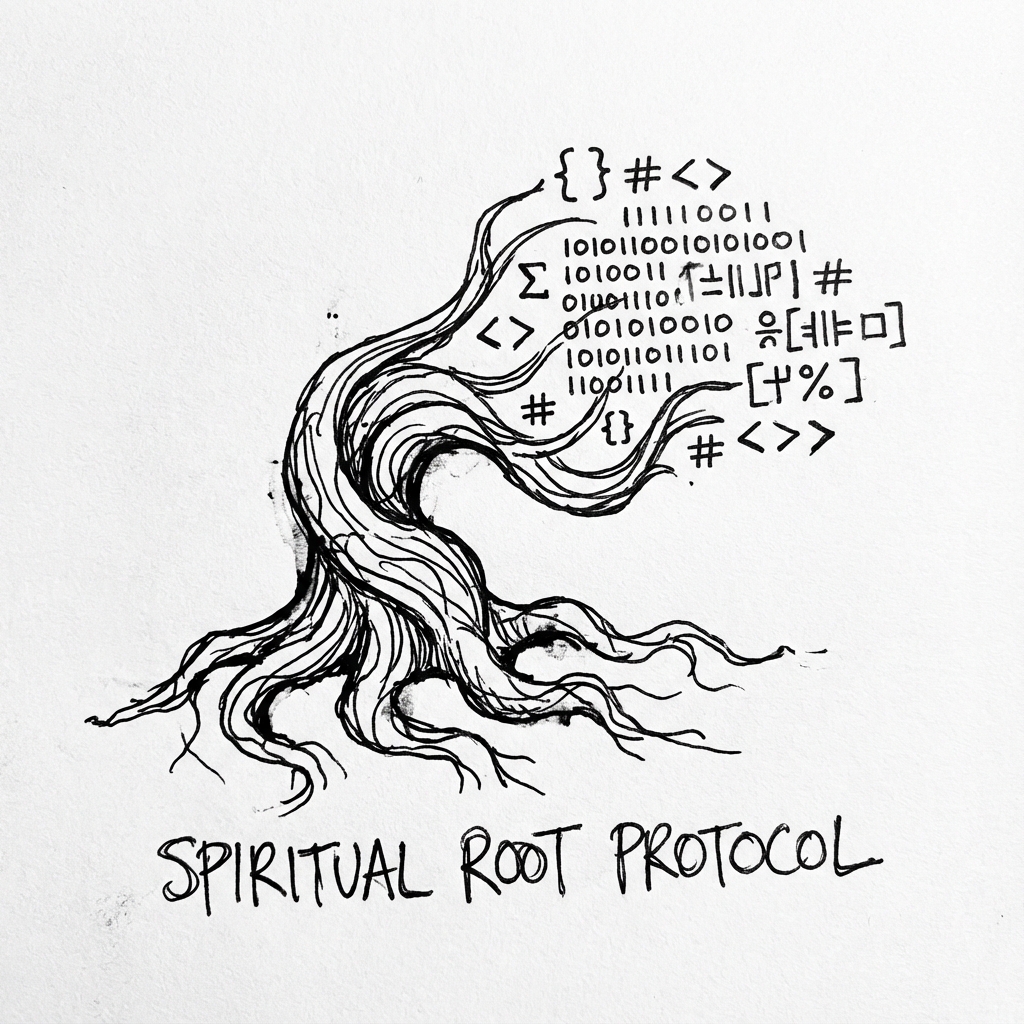 {} # <>
111110011
1010110010101001
Σ 1010011 #
010011101
<> 0101010010
101011011101
11001111 [%]
# {}
# <>>
SPIRITUAL ROOT PROTOCOL